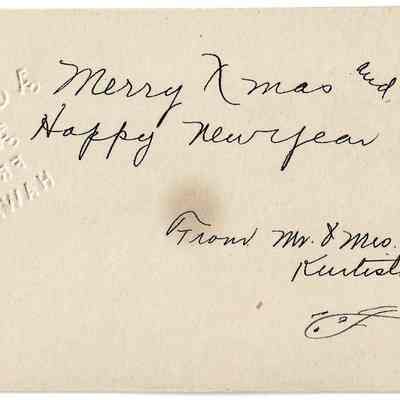 Merry Xmas and
Happy New Year
From Mr. & Mrs.
Kurtist